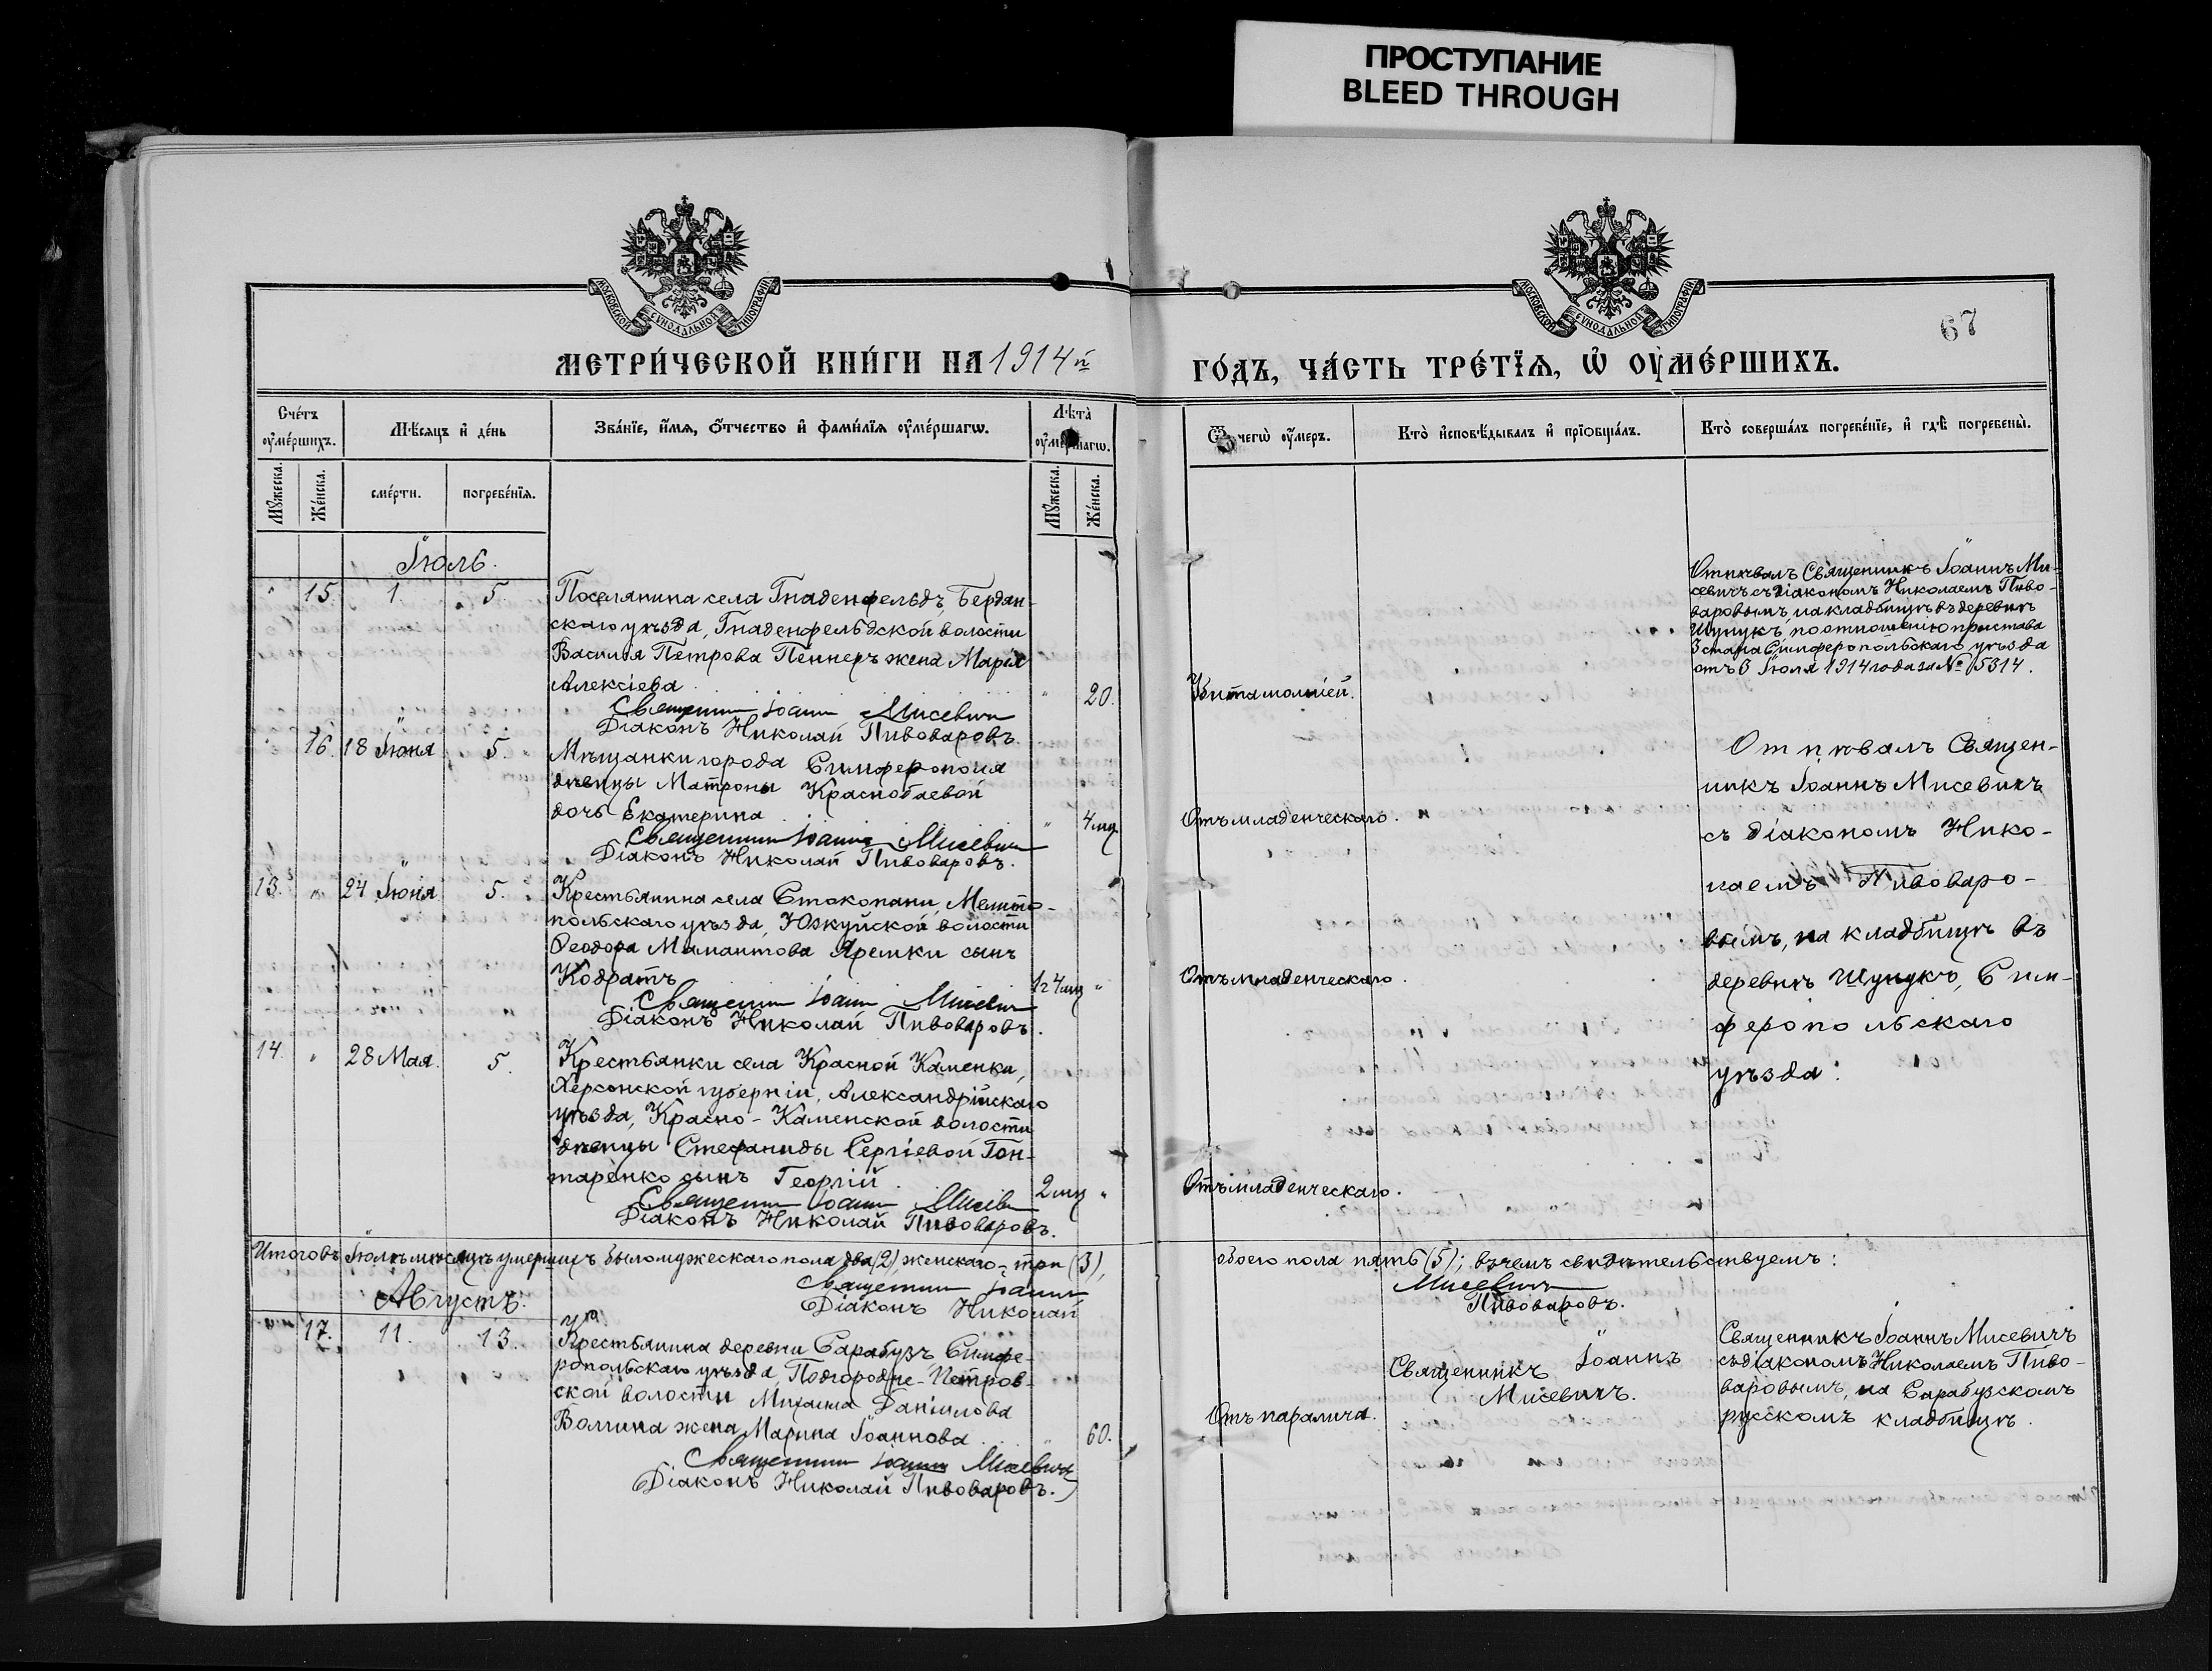 ПРОСТУПАНИЕ
BLEED THROUGH
МОСКОВСКОЙ СѴНОДАЛЬНОЙ ТИПОГРАФІИ
МОСКОВСКОЙ СѴНОДАЛЬНОЙ ТИПОГРАФІИ
67
МЕТРИ́ЧЕСКОЙ КНИ́ГИ НА 1914 й
ГО́ДЪ, ЧА́СТЬ ТРЕ́ТЇѦ, Ѡ҆ ОУ҆МЕ́РШИХЪ.
Сче́тъ оу҆ме́ршихъ.
Мꙋ́жеска.
Же́нска.
Мѣ́сѧцъ и҆ де́нь
сме́рти.
погребе́нїѧ.
Зва́нїе, и҆́мѧ, ѻ҆́тчество и҆ фамѝлїѧ оу҆ме́ршагѡ.
Лѣ́та оу҆ме́ршагѡ.
Мꙋ́жеска.
Же́нска.
Ѿ чегѡ̀ оу҆́меръ.
Кто̀ и҆сповѣ́дывалъ и҆ прїѡбща́лъ.
Кто̀ соверша́лъ погребе́нїе, и҆ гдѣ̀ погребены̀.
Іюль.
" 15. 1 5.
Поселянина села Гнаденфельдъ, Бердян-
скаго уѣзда, Гнаденфельдской волости
Василія Петрова Пеннеръ жена Марія
Алексіева . . . " 20.
Священникъ Іоаннъ Мисевичъ
Діаконъ Николай Пивоваровъ.
Убита молніей.
Отпѣвалъ Священникъ Іоаннъ Ми-
севичъ съ діакономъ Николаемъ Пиво-
варовымъ, на кладбищѣ въ деревнѣ
Шунукъ, по отношенію пристава
3 стана Симферопольскаго уѣзда
отъ 3 Іюля 1914 года за № 5314.
" 16. 18 Іюня 5.
Мѣщанки города Симферополя
дѣвицы Матроны Краснобаевой
дочь Екатерина . " 4 мц.
Священникъ Іоаннъ Мисевичъ
Діаконъ Николай Пивоваровъ.
Отъ младенческаго.
Отпѣвалъ Священ-
никъ Іоаннъ Мисевичъ
съ діакономъ Нико-
лаемъ Пивоваро-
вымъ, на кладбищѣ въ
деревнѣ Шунукъ, Сим-
феропольскаго
уѣзда.
13. " 24 Іюня 5.
Крестьянина села Стокопани, Мелито-
польскаго уѣзда, Юзкуйской волости
Ѳеодора Мамантова Яремки сынъ
Кодратъ 4 мц "
Священникъ Іоаннъ Мисевичъ
Діаконъ Николай Пивоваровъ.
Отъ младенческаго.
14. " 28 Мая. 5.
Крестьянки села Красной Каменки,
Херсонской губерніи, Александрійскаго
уѣзда, Красно-Каменской волости
дѣвицы Стефаниды Сергіевой Гон-
таренко сынъ Георгій. 2 мц "
Священникъ Іоаннъ Мисевичъ
Діаконъ Николай Пивоваровъ.
Отъ младенческаго.
Итого въ Іюлѣ мѣсяцѣ умершихъ было мужескаго пола два (2), женскаго - три (3),
обоего пола пять (5); въ чемъ свидѣтельствуемъ:
Священникъ Іоаннъ
Мисевичъ
Діаконъ Николай
Пивоваровъ.
Августъ.
" 17. 11. 13.
Крестьянина деревни Сарабузъ, Симфе-
ропольскаго уѣзда, Подгородне-Петров-
ской волости Михаила Даніилова
Волгина жена Марина Іоаннова . . . " 60.
Священникъ Іоаннъ Мисевичъ
Діаконъ Николай Пивоваровъ.
Отъ паралича.
Священникъ Іоаннъ
Мисевичъ.
Священникъ Іоаннъ Мисевичъ
съ діакономъ Николаемъ Пиво-
варовымъ, на Сарабузскомъ
русскомъ кладбищѣ.